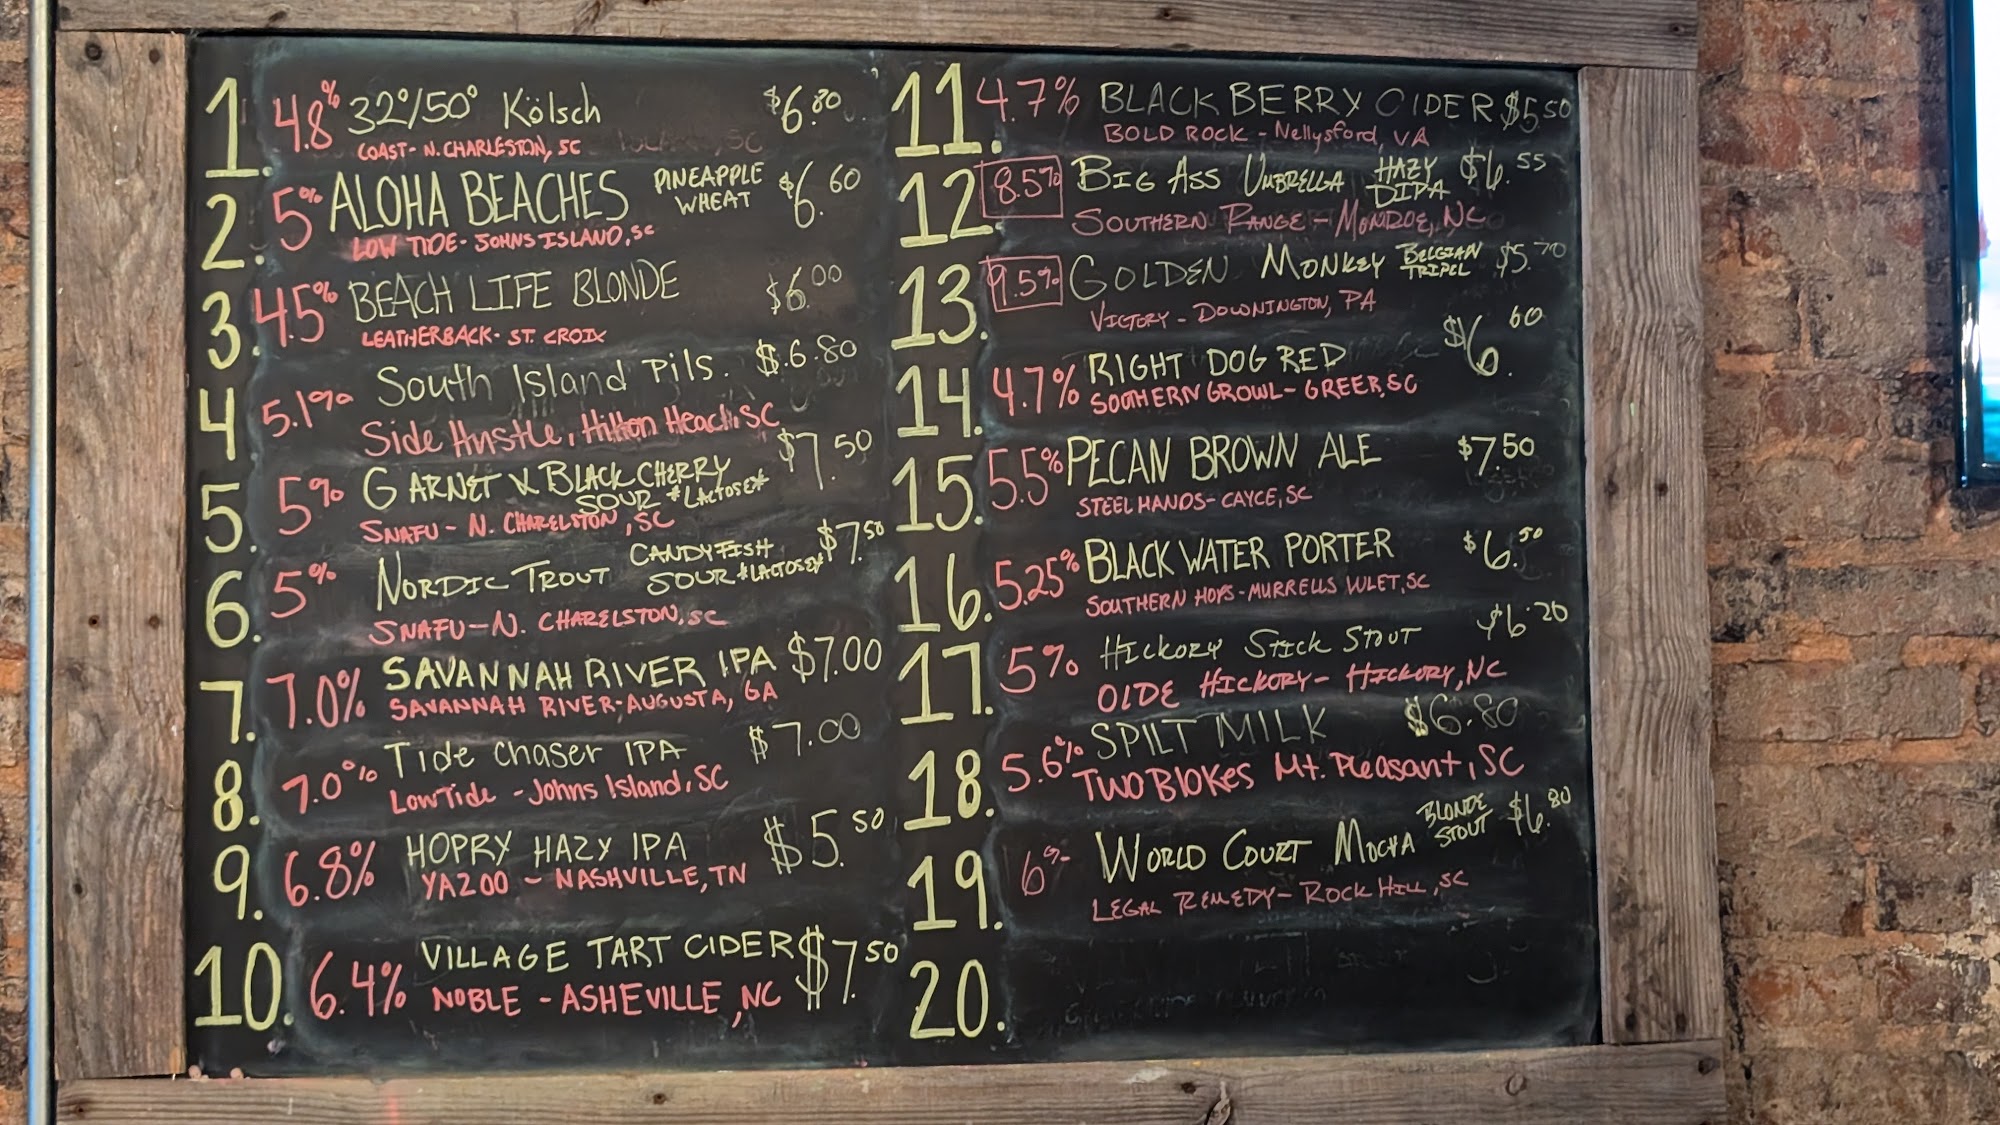 1. 4.8% 32°/50° Kölsch $6.80
COAST- N. CHARLESTON, SC
2. 5% ALOHA BEACHES PINEAPPLE WHEAT $6.60
LOW TIDE- JOHNS ISLAND, SC
3. 4.5% BEACH LIFE BLONDE $6.00
LEATHERBACK- ST. CROIX
4. 5.1% South Island Pils. $6.80
Side Hustle, Hilton Head, SC
5. 5% GARNET & BLACK CHERRY SOUR *LACTOSE* $7.50
SNAFU - N. CHARELSTON, SC
6. 5% NORDIC TROUT CANDYFISH SOUR *LACTOSE* $7.50
SNAFU - N. CHARELSTON, SC
7. 7.0% SAVANNAH RIVER IPA $7.00
SAVANNAH RIVER-AUGUSTA, GA
8. 7.0% Tide Chaser IPA $7.00
Low Tide - Johns Island, SC
9. 6.8% HOPRY HAZY IPA $5.50
YAZOO - NASHVILLE, TN
10. 6.4% VILLAGE TART CIDER $7.50
NOBLE - ASHEVILLE, NC
11. 4.7% BLACKBERRY CIDER $5.50
BOLD ROCK - Nellysford, VA
12. 8.5% BIG ASS UMBRELLA HAZY DIPA $6.55
SOUTHERN RANGE - MONROE, NC
13. 9.5% GOLDEN MONKEY BELGIAN TRIPEL $5.70
VICTORY - DOWNINGTON, PA
14. 4.7% RIGHT DOG RED $6.60
SOUTHERN GROWL - GREER, SC
15. 5.5% PECAN BROWN ALE $7.50
STEEL HANDS - CAYCE, SC
16. 5.25% BLACK WATER PORTER $6.50
SOUTHERN HOPS - MURRELLS INLET, SC
17. 5% HICKORY STICK STOUT $6.20
OLDE HICKORY - HICKORY, NC
18. 5.6% SPILT MILK $6.80
TWO BLOKES Mt. Pleasant, SC
19. 6% WORLD COURT MOCHA BLONDE STOUT $6.80
LEGAL REMEDY - ROCK HILL, SC
20.